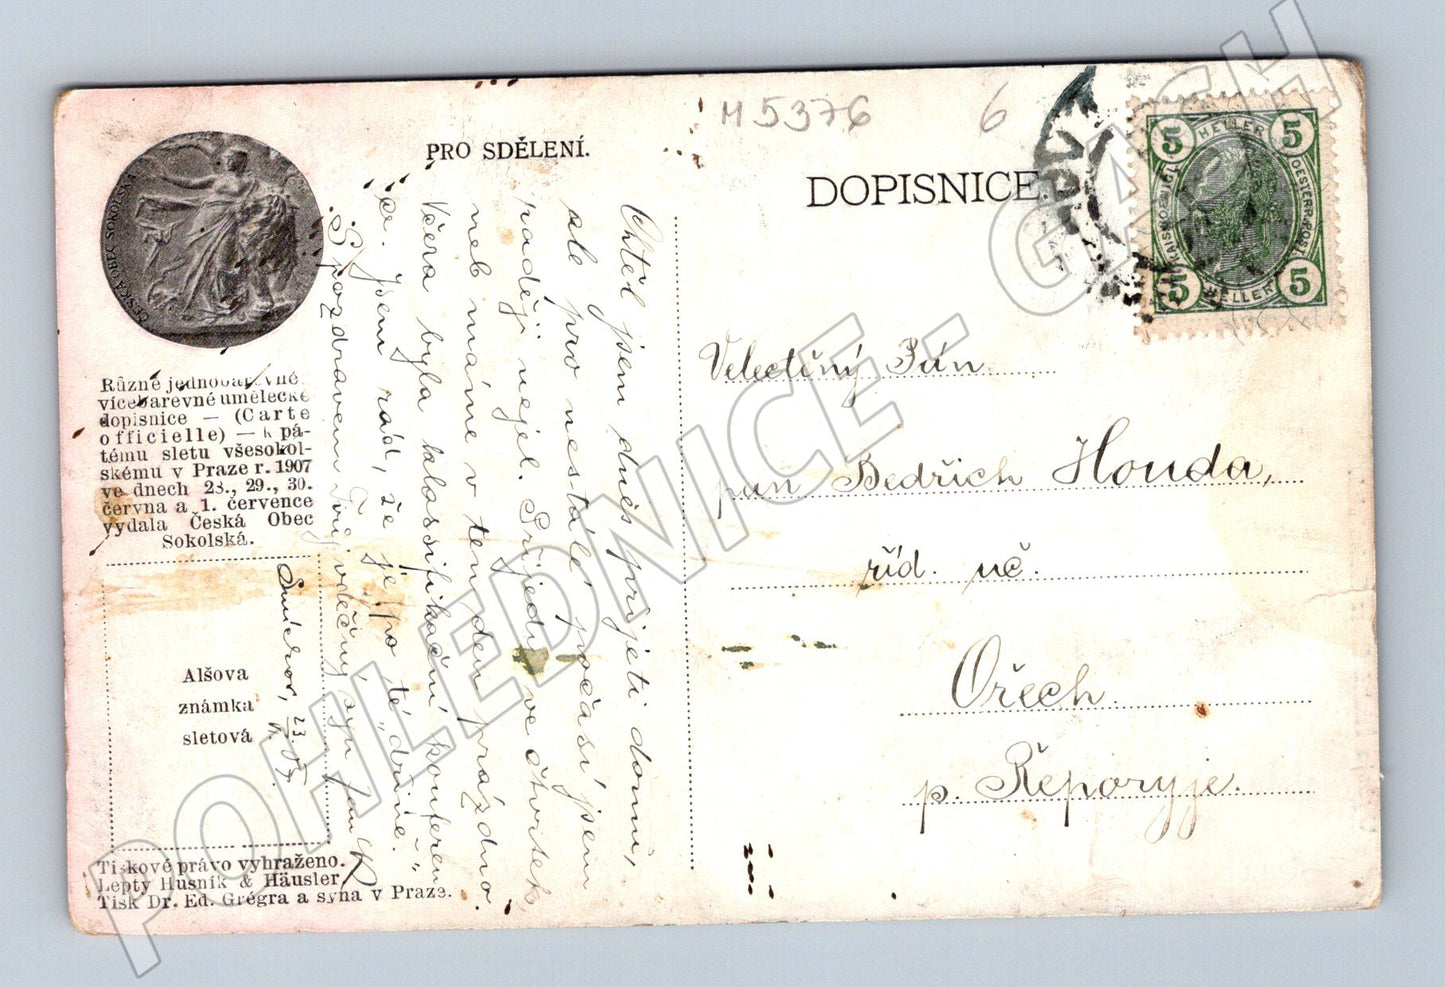 M 5376 6
PRO SDĚLENÍ.
DOPISNICE.
ČESKÁ OBEC SOKOLSKÁ
5 HELLER 5
5 HELLER 5
Různé jednobarevné
vícebarevné umělecké
dopisnice — (Carte
officielle) — k pá-
tému sletu všesokol-
skému v Praze r. 1907
ve dnech 28., 29., 30.
června a 1. července
vydala Česká Obec
Sokolská.
Alšova
známka
sletová
Tiskové právo vyhraženo.
Lepty Husník & Häusler
Tisk Dr. Ed. Grégra a syna v Praze.
Chtěl jsem dnes přijeti domů,
ale pro nestálé počasí jsem
raději nejel. Přijedu ve čtvrtek
neb máme v ten den prázdno.
Včera byla klassifikační konferen
ce. Jsem rád, že je po té „dřině.“
S pozdravem Tvůj vděčný syn
Smíchov, 23. 07.
Velectěný Pán
pan Bedřich Honda,
říd. uč.
Ořech.
p. Řeporyje.
POHLEDNICE - GASH